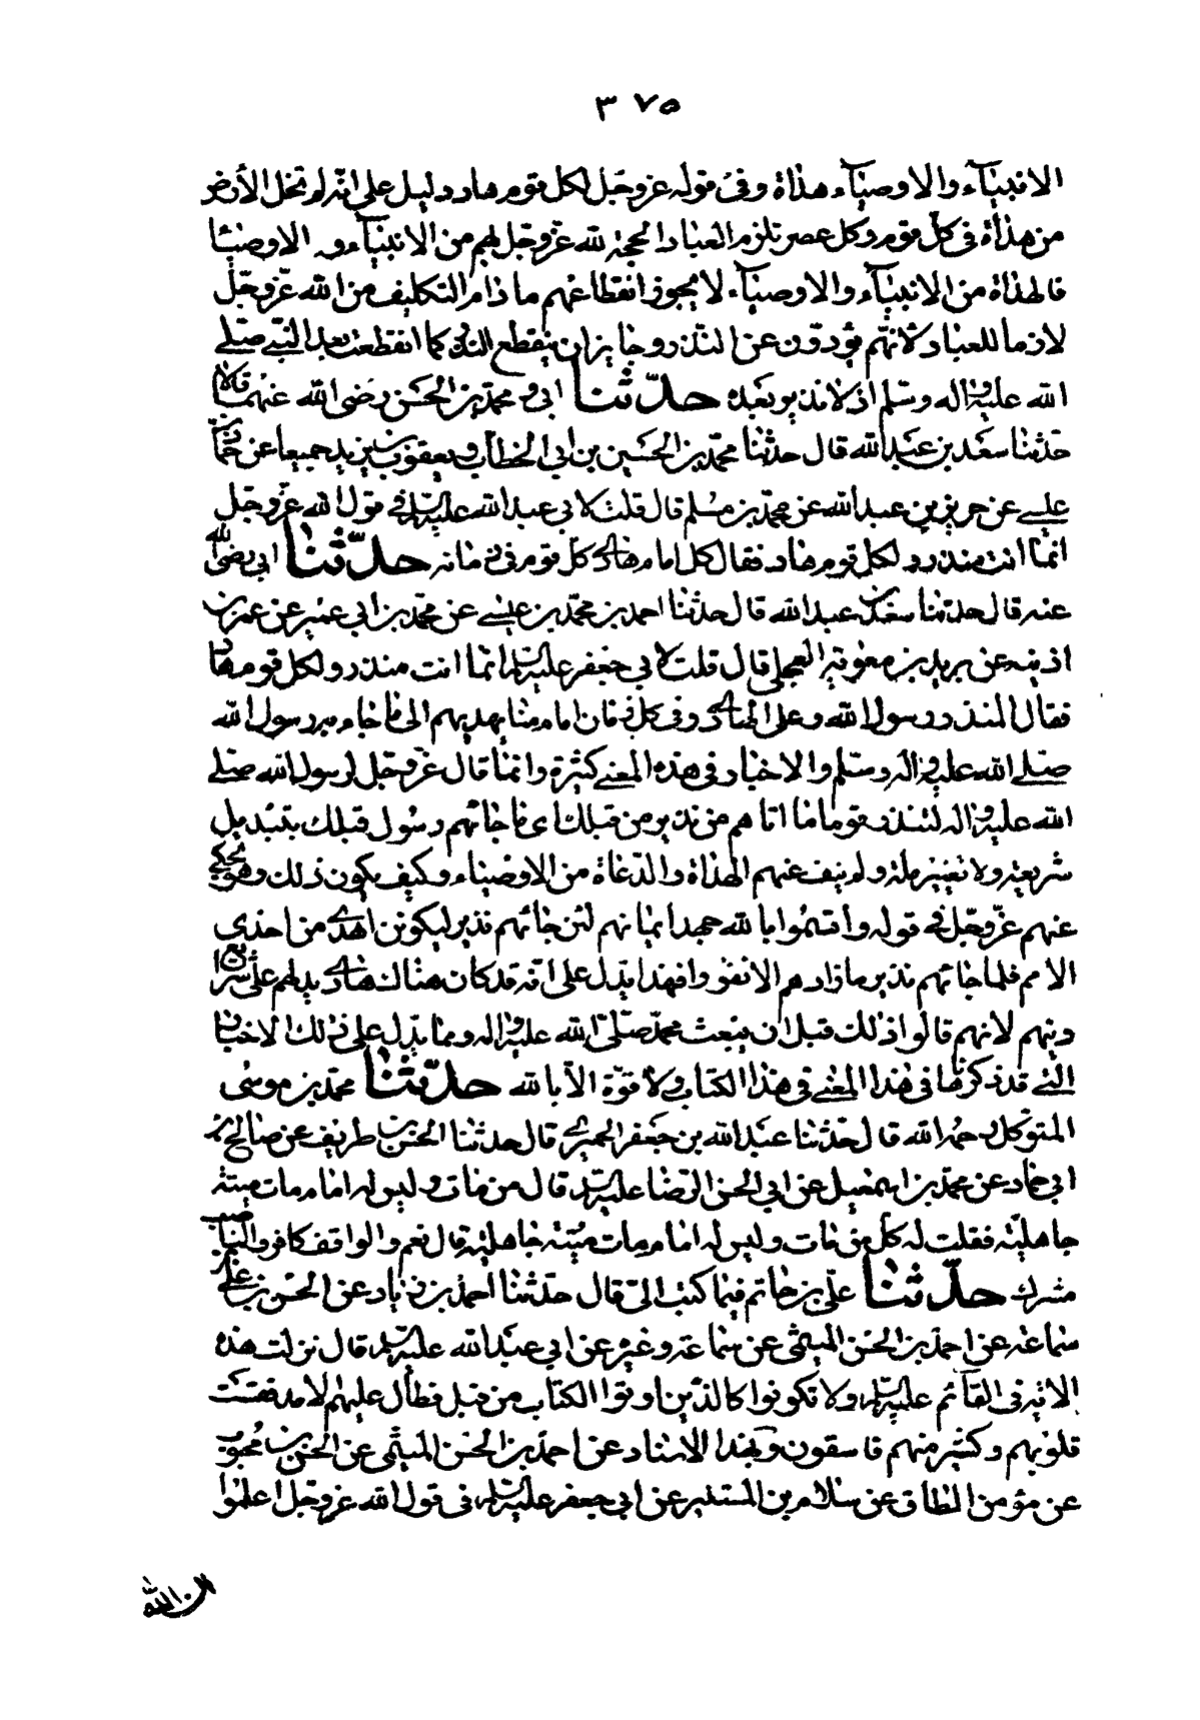 ٣٧٥
الانبياء والاوصياء هداة وفى قوله عز وجل لكل قوم هاد دليل على انه لم تخل الأرض
من هداة فى كل قوم وكل عصر تلزم العباد الحجة لله عز وجل بهم من الانبياء و الاوصيا
فالهداة من الانبياء والاوصياء لا يجوز انقطاعهم ما دام التكليف من الله عز وجل
لازما للعباد لانهم يؤدون عن النذر وجايز ان ينقطع النذر كما انقطعت بعد النبي صلى
الله عليه واله وسلم اذ لا نذير بعده حدثنا ابى و محمد بن الحسن رضى الله عنهما قالا
حدثنا سعد بن عبد الله قال حدثنا محمد بن الحسين بن ابي الخطاب ويعقوب بن يزيد جميعا عن حماد بن
عيسى عن حريز بن عبد الله عن محمد بن مسلم قال قلت لابى عبد الله عليه السلام فى قول الله عز وجل
انما انت منذر ولكل قوم هاد فقال كل امام هادى كل قوم فى زمانه حدثنا ابى رضى الله
عنه قال حدثنا سعد بن عبد الله قال حدثنا احمد بن محمد بن عيسى عن محمد بن ابى عمير عن عمر بن
اذينه عن بريد بن معوية العجلى قال قلت لابى جعفر عليه السلام انما انت منذر ولكل قوم هاد
فقال المنذر رسول الله وعلى الهادى وفى كل زمان امام منا يهديهم الى ما جاء به رسول الله
صلى الله عليه واله وسلم والاخبار فى هذه المعنى كثيرة وانما قال عز وجل لرسول الله صلى
الله عليه واله لتنذر قوما ما اتاهم من نذير من قبلك اى ما جائهم رسول قبلك بتبديل
شريعة ولا تغيير ملة ولم ينف عنهم الهداة والدعاة من الاوصياء وكيف يكون ذلك وهو يحكى
عنهم عز وجل فى قوله واقسموا بالله جهد ايمانهم لئن جائهم نذير ليكونن اهدى من احدى
الامم فلما جائهم نذير ما زادهم الا نفورا فهذا يدل على انه قد كان هنالك هادى يدلهم على شرايع
دينهم لانهم قالوا ذلك قبل ان يبعث محمد صلى الله عليه واله ومما يدل على ذلك الاخبار
التى قد ذكرناها فى هذا المعنى فى هذا الكتاب ولا قوة الا بالله حدثنا محمد بن موسى
المتوكل رحمه الله قال حدثنا عبد الله بن جعفر الحميرى قال حدثنا الحسن بن طريف عن صالح بن
ابى حماد عن محمد بن اسمعيل عن ابى الحسن الرضا عليه السلام قال من مات وليس له امام مات ميتة
جاهلية فقلت له كل من مات وليس له امام مات ميتة جاهلية قال نعم والواقف كافر والناصب
مشرك حدثنا على بن حاتم فيما كتب الى قال حدثنا احمد بن زياد عن الحسن بن على بن
سماعه عن احمد بن الحسن الميثمى عن سماعة وغيره عن ابى عبد الله عليه السلام قال نزلت هذه
الاية فى القائم عليه السلام ولا تكونوا كالذين اوتوا الكتاب من قبل فطال عليهم الامد فقست
قلوبهم وكثير منهم فاسقون وبهذا الاسناد عن احمد بن الحسن الميثمى عن الحسن بن محبوب
عن مؤمن الطاق عن سلام بن المستنير عن ابى جعفر عليه السلام فى قول الله عز وجل اعلموا
ان الله